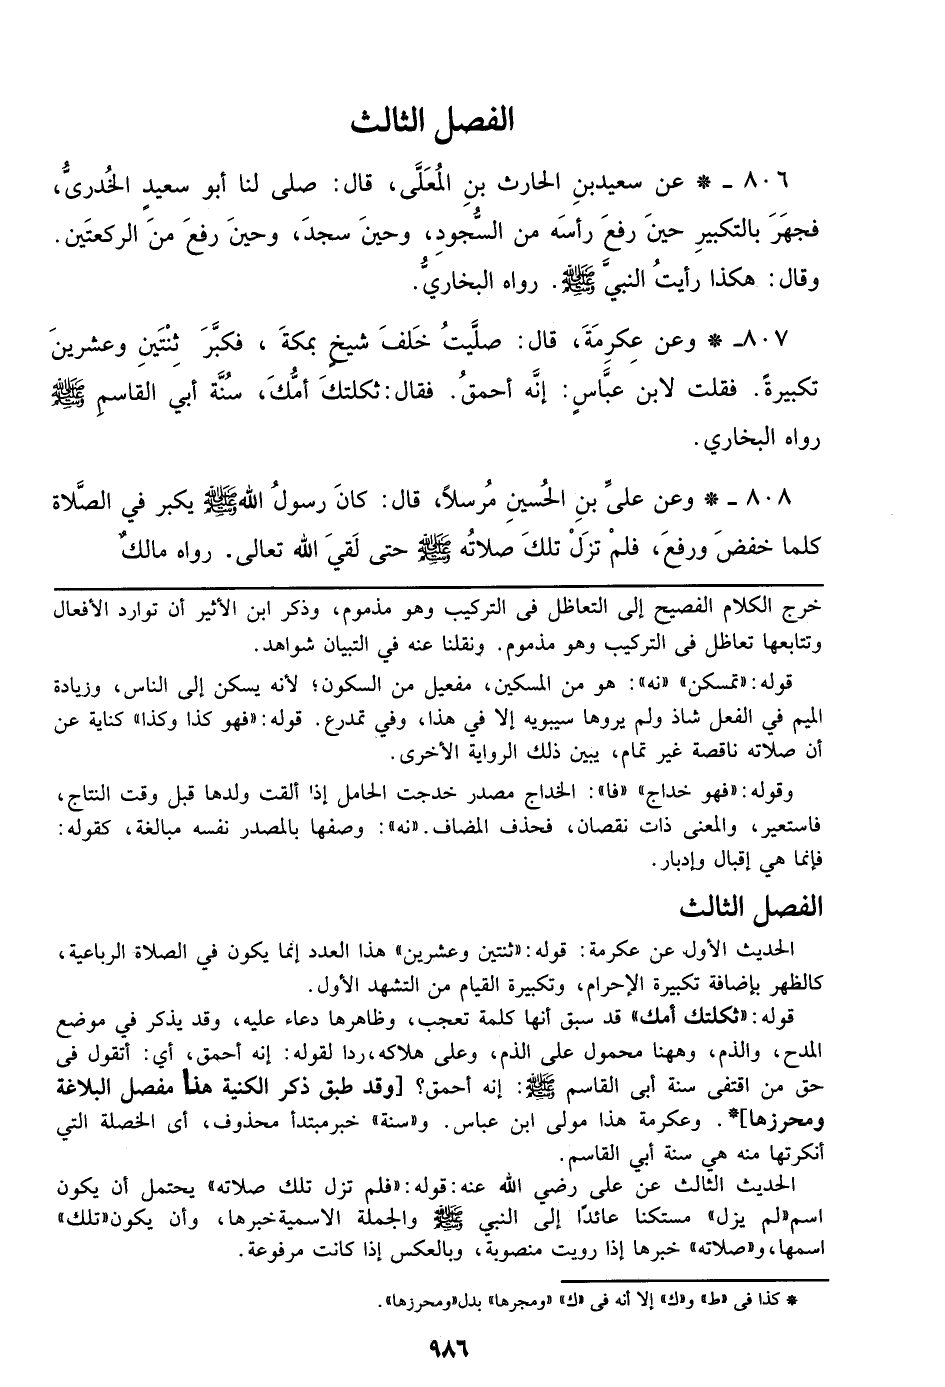 الفصل الثالث
٨٠٦ ـ * عن سعيدبنِ الحارث بنِ المُعَلَّى، قال: صلى لنا أبو سعيدٍ الخُدريُّ،
فجهَرَ بالتكبيرِ حينَ رفعَ رأسَه من السُّجودِ، وحينَ سجدَ، وحينَ رفعَ منَ الركعتَين.
وقال: هكذا رأيتُ النبيَّ ﷺ. رواه البخاريُّ.
٨٠٧ـ * وعن عِكرِمَةَ، قال: صلَّيتُ خَلفَ شيخٍ بمكةَ ، فكبَّرَ ثِنْتَينِ وعشرينَ
تكبيرةً. فقلت لابن عبَّاسٍ: إنَّه أحمقُ. فقال:ثكلتكَ أمُّكَ، سنَُّة أبي القاسمِ ﷺ
رواه البخاري.
٨٠٨ ـ * وعن عليِّ بنِ الحُسينِ مُرسلاً، قال: كانَ رسولُ اللهﷺ يكبر في الصَّلاة
كلما خفضَ ورفعَ، فلمْ تزَلْ تلكَ صلاتُه ﷺ حتى لَقيَ الله تعالى. رواه مالكٌ
خرج الكلام الفصيح إلى التعاظل فى التركيب وهو مذموم، وذكر ابن الأثير أن توارد الأفعال
وتتابعها تعاظل فى التركيب وهو مذموم. ونقلنا عنه في التبيان شواهد.
قوله:«تمسكن» «نه»: هو من المسكين، مفعيل من السكون؛ لأنه يسكن إلى الناس، وزيادة
الميم في الفعل شاذ ولم يروها سيبويه إلا في هذا، وفي تمدرع. قوله:«فهو كذا وكذا» كناية عن
أن صلاته ناقصة غير تمام، يبين ذلك الرواية الأخرى.
وقوله:«فهو خداج» «فا»: الخداج مصدر خدجت الحامل إذا ألقت ولدها قبل وقت النتاج،
فاستعير، والمعنى ذات نقصان، فحذف المضاف.«نه»: وصفها بالمصدر نفسه مبالغة، كقوله:
فإنما هي إقبال وإدبار.
الفصل الثالث
الحديث الأول عن عكرمة: قوله:«ثنتين وعشرين» هذا العدد إنما يكون في الصلاة الرباعية،
كالظهر بإضافة تكبيرة الإحرام، وتكبيرة القيام من التشهد الأول.
قوله:«ثكلتك أمك» قد سبق أنها كلمة تعجب، وظاهرها دعاء عليه، وقد يذكر في موضع
المدح، والذم، وههنا محمول على الذم، وعلى هلاكه،ردا لقوله: إنه أحمق، أي: أتقول فى
حق من اقتفى سنة أبي القاسم ﷺ: إنه أحمق؟ [وقد طبق ذكر الكنية هنا مفصل البلاغة
ومحرزها]*. وعكرمة هذا مولى ابن عباس. و«سنة» خبرمبتدأ محذوف، أى الخصلة التي
أنكرتها منه هي سنة أبي القاسم.
الحديث الثالث عن على رضي الله عنه:قوله:«فلم تزل تلك صلاته» يحتمل أن يكون
اسم«لم يزل» مستكنا عائدًا إلى النبي ﷺ والجملة الاسميةخبرها، وأن يكون«تلك»
اسمها،و«صلاته» خبرها إذا رويت منصوبة، وبالعكس إذا كانت مرفوعة.
* كذا فى «ط» و«ك» إلا أنه فى «ك» «ومجرها» بدل«ومحرزها».
٩٨٦